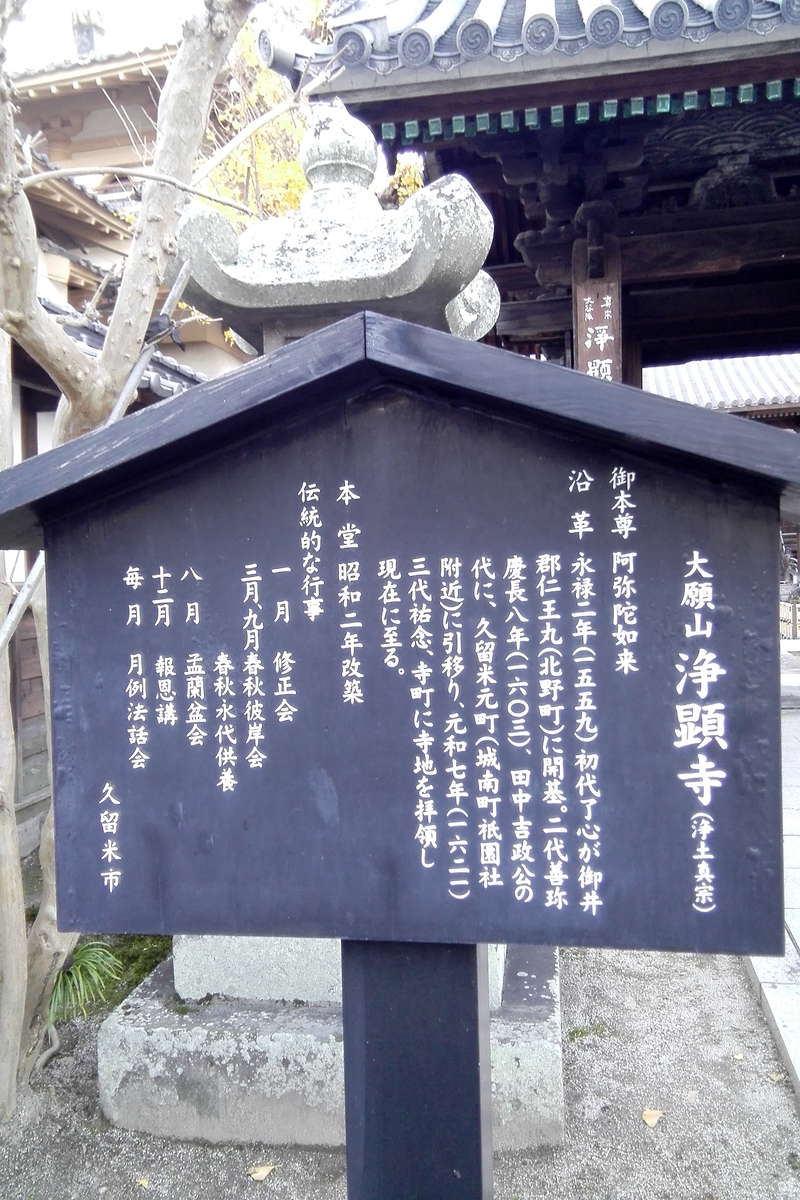 大願山 浄顕寺(浄土真宗)
御本尊 阿弥陀如来
沿革 永禄二年(一五五九)初代了心が御井
郡仁王丸(北野町)に開基。二代善珎
慶長八年(一六〇三)、田中吉政公の
代に、久留米元町(城南町祇園社
附近)に引移り、元和七年(一六二一)
三代祐念、寺町に寺地を拝領し
現在に至る。
本堂 昭和二年改築
伝統的な行事
一月 修正会
三月、九月 春秋彼岸会
春秋永代供養
八月 盂蘭盆会
十二月 報恩講
毎月 月例法話会
久留米市
真宗
大谷派
浄顕